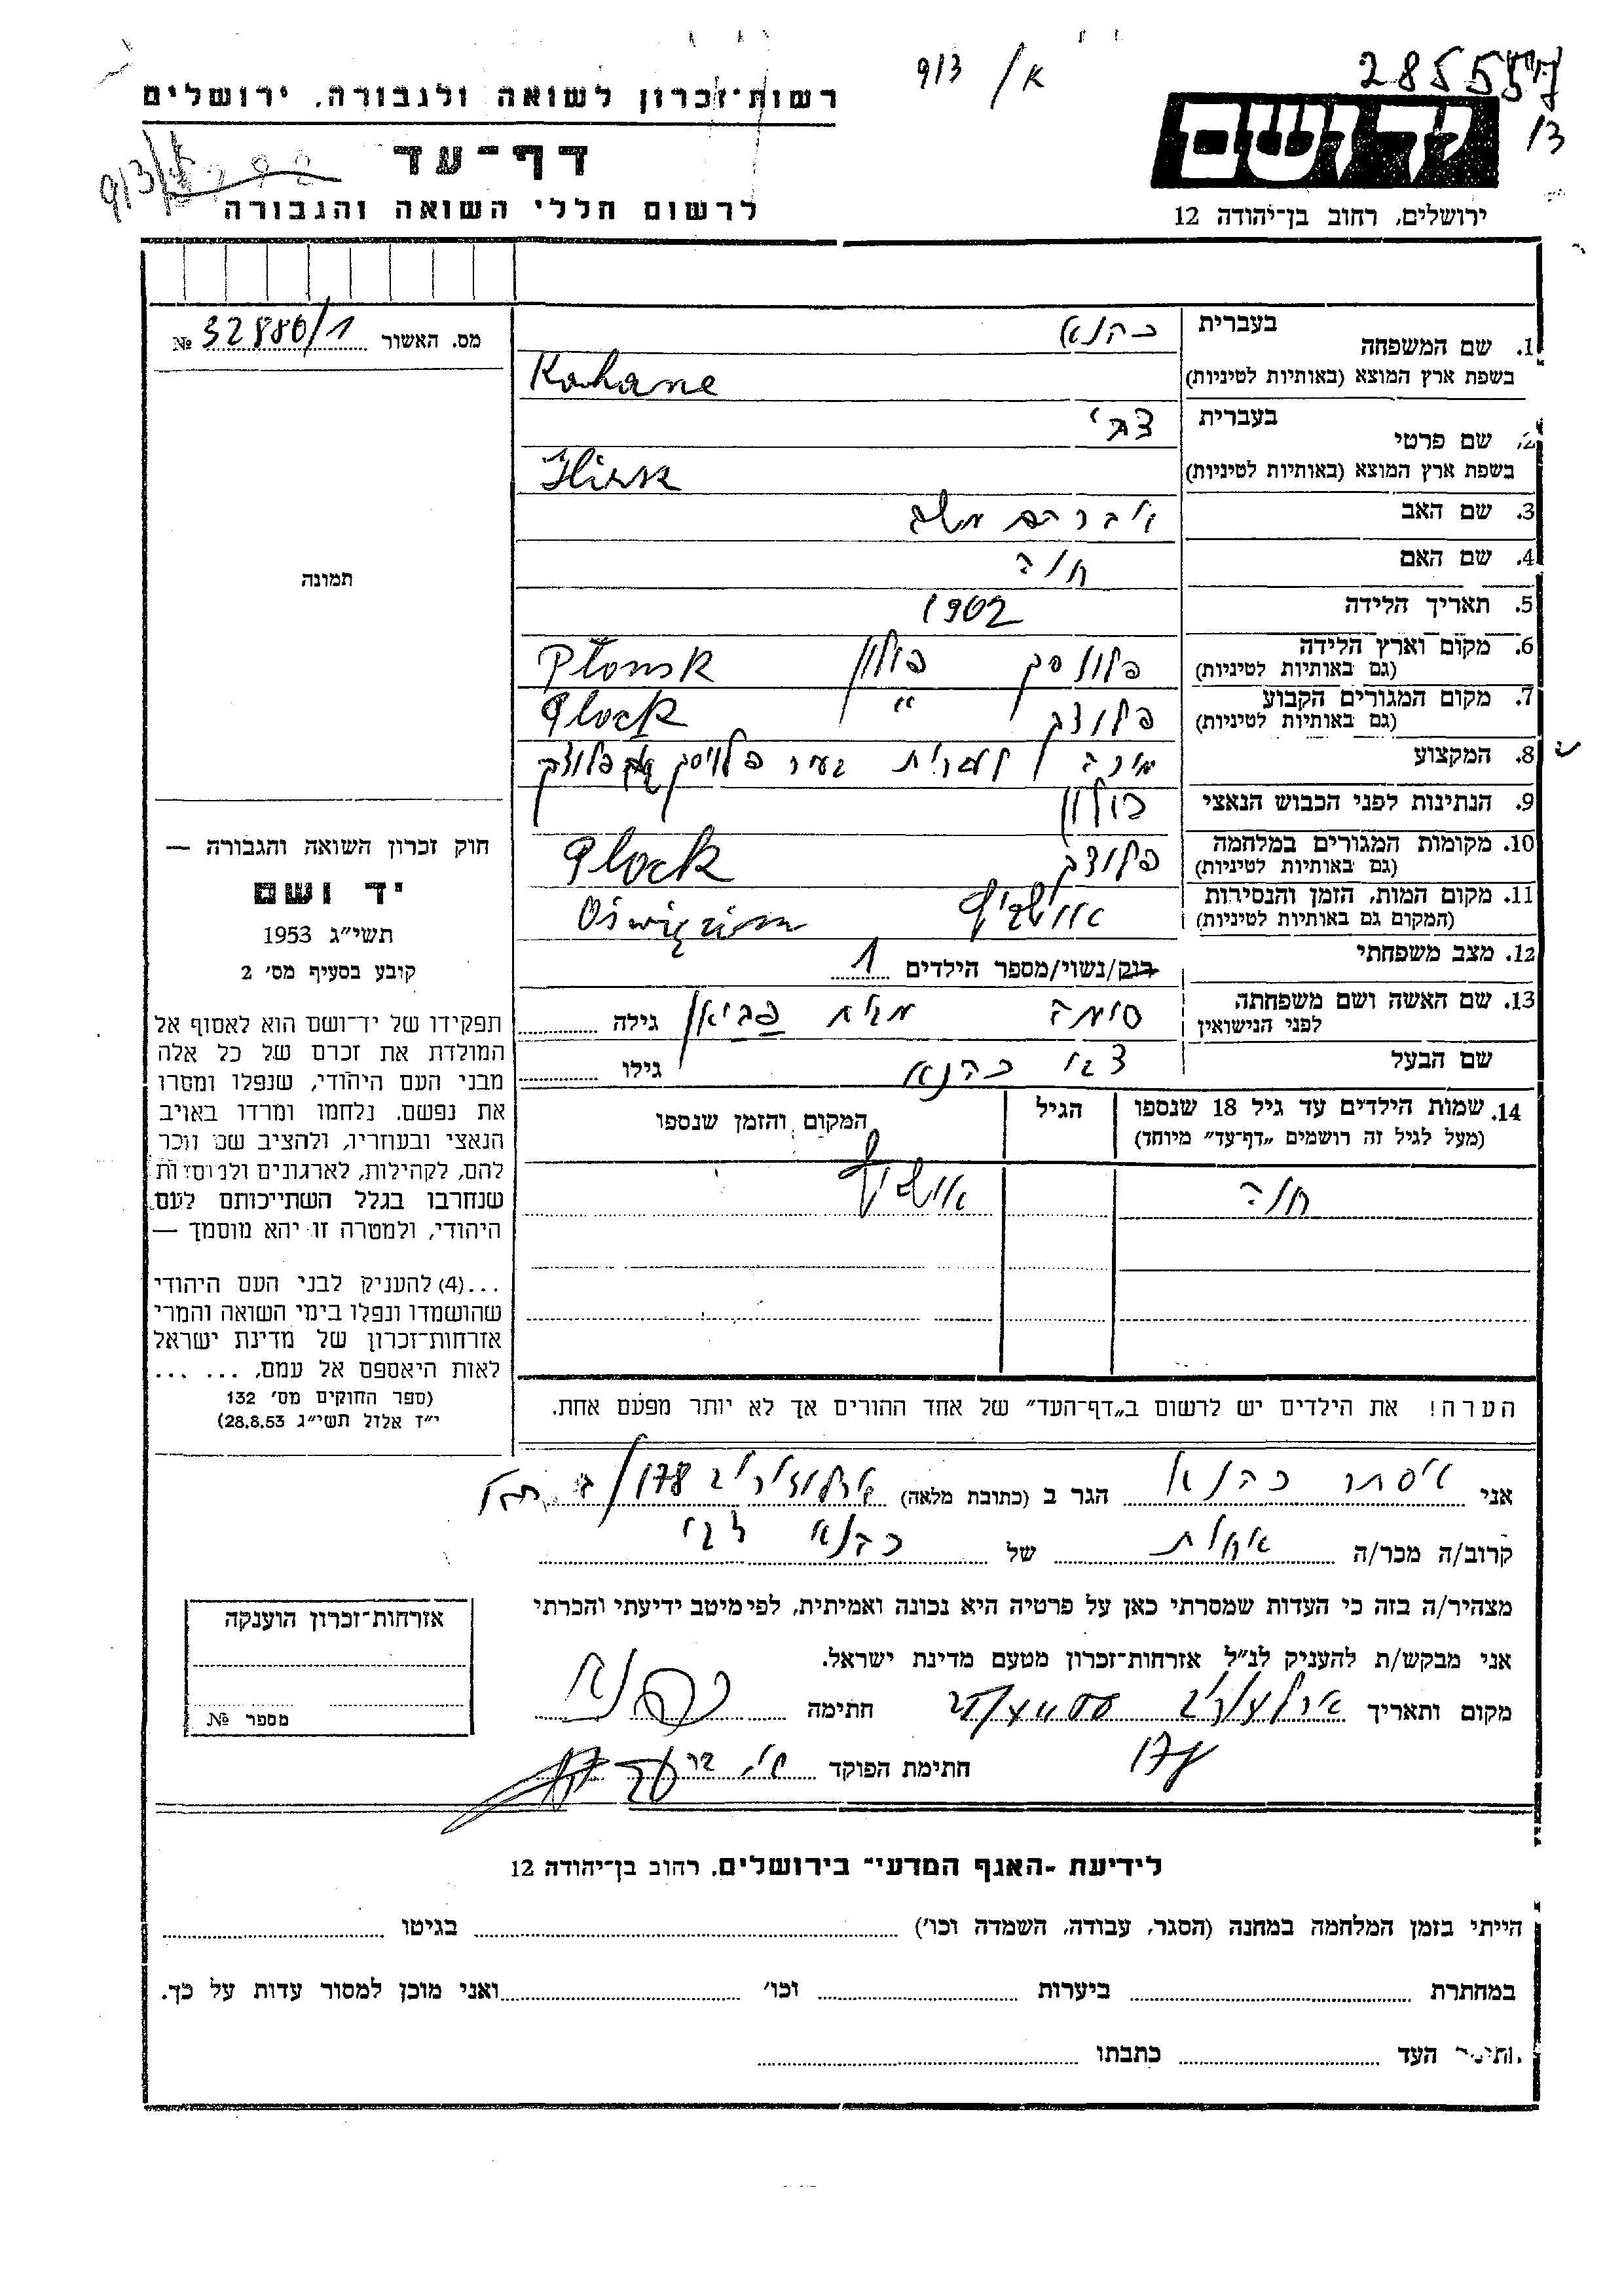 285557
13
913 / א
רשות־זכרון לשואה ולגבורה, ירושלים
דף־עד
לרשום חללי השואה והגבורה
ידושם
ירושלים, רחוב בן־יהודה 12
מס. האשור 32880/1 №
תמונה
1. שם המשפחה
בעברית כהנא
בשפת ארץ המוצא (באותיות לטיניות) Kahane
2. שם פרטי
בעברית צבי
בשפת ארץ המוצא (באותיות לטיניות) Hirsk
3. שם האב אברהם משה
4. שם האם חוה
5. תאריך הלידה 1902
6. מקום וארץ הלידה (גם באותיות לטיניות) פלונסק פולין Płonsk
7. מקום המגורים הקבוע (גם באותיות לטיניות) פלוצק " Plock
8. המקצוע מורה לעברית בעיר פלונסק פלוצק
9. הנתינות לפני הכבוש הנאצי פולין
10. מקומות המגורים במלחמה (גם באותיות לטיניות) פלוצק Plock
11. מקום המות, הזמן והנסירות (המקום גם באותיות לטיניות) אושויץ Oświęcim
12. מצב משפחתי רוק/נשוי/מספר הילדים 1
13. שם האשה ושם משפחתה לפני הנישואין סימה מבית פביאן גילה
שם הבעל צבי כהנא גילו
14. שמות הילדים עד גיל 18 שנספו (מעל לגיל זה רושמים „דף־עד” מיוחד) הגיל המקום והזמן שנספו
חוה אושויץ
הערה! את הילדים יש לרשום ב„דף־העד” של אחד ההורים אך לא יותר מפעם אחת.
חוק זכרון השואה והגבורה —
יד ושם
תשי״ג 1953
קובע בסעיף מס׳ 2
תפקידו של יד־ושם הוא לאסוף אל
המולדת את זכרם של כל אלה
מבני העם היהודי, שנפלו ומסרו
את נפשם. נלחמו ומרדו באויב
הנאצי ובעוזריו, ולהציב שם וזכר
להם, לקהילות, לארגונים ולמוסדות
שנחרבו בגלל השתייכותם לעם
היהודי, ולמטרה זו יהא מוסמך —
...(4) להעניק לבני העם היהודי
שהושמדו ונפלו בימי השואה והמרי
אזרחות־זכרון של מדינת ישראל
לאות היאספם אל עמם. ... ...
(ספר החוקים מס׳ 132
י״ז אלול תשי״ג 28.8.53)
אני אסתר כהנא הגר ב (כתובת מלאה) ארלוזורוב 178
קרוב/ה מכר/ה אחות של כהנא צבי
מצהיר/ה בזה כי העדות שמסרתי כאן על פרטיה היא נכונה ואמיתית, לפי מיטב ידיעתי והכרתי
אני מבקש/ת להעניק לנ״ל אזרחות־זכרון מטעם מדינת ישראל.
מקום ותאריך ארלוזורוב חתימה כהנא
178
חתימת הפוקד
אזרחות־זכרון הוענקה
מספר №
לידיעת -האגף המדעי־ בירושלים, רחוב בן־יהודה 12
הייתי בזמן המלחמה במחנה (הסגר, עבודה, השמדה וכו׳) בגיטו
במחתרת ביערות וכו׳ ואני מוכן למסור עדות על כך.
העד כתבתו